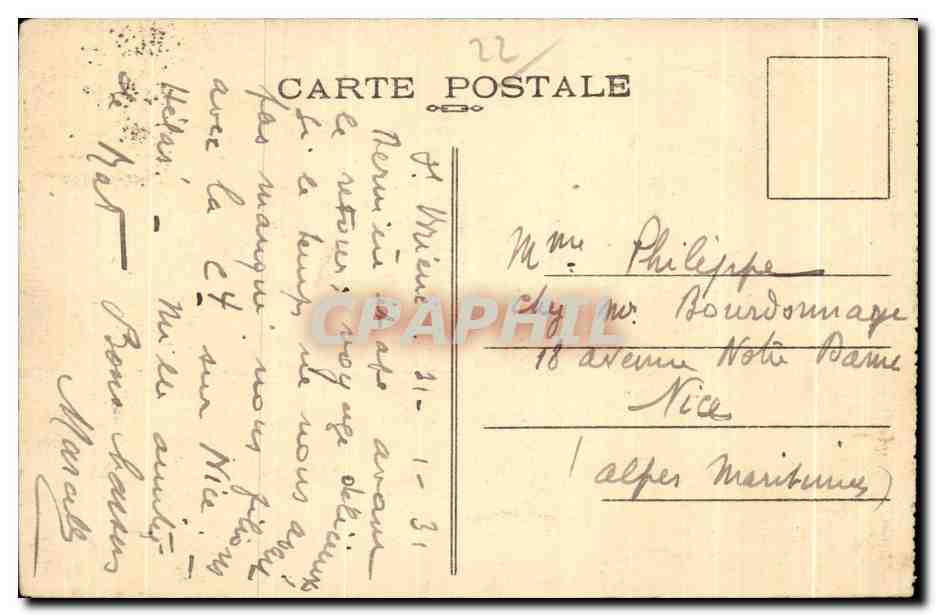 22
CARTE POSTALE
31-1-31
Dernière étape avant
le retour, voyage délicieux
Si le temps ne nous a
pas manqué, nous filions
avec la C4 sur Nice.
Hélas! - Mille amitiés
de Mat - Bons baisers
Marcelle
Mme Philippe
chez Mr Bourdonnaye
18 avenue Notre Dame
Nice
(Alpes Maritimes)
CPAPHIL